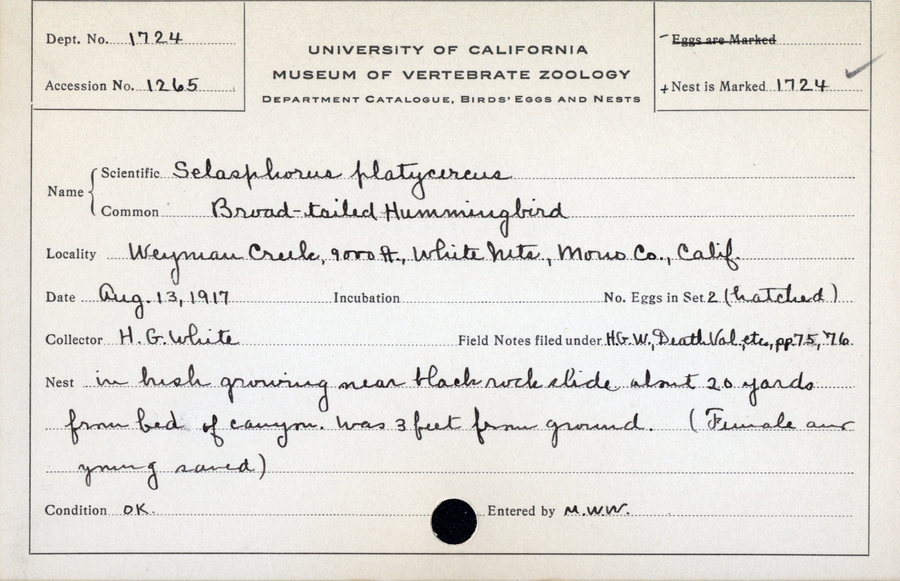 Dept. No. 1724
Accession No. 1265
UNIVERSITY OF CALIFORNIA
MUSEUM OF VERTEBRATE ZOOLOGY
DEPARTMENT CATALOGUE, BIRDS' EGGS AND NESTS
Eggs are Marked
+ Nest is Marked 1724
Name
Scientific Selasphorus platycercus
Common Broad-tailed Hummingbird
Locality Weyman Creek, 9000 ft., White Mts., Mono Co., Calif.
Date Aug. 13, 1917 Incubation No. Eggs in Set 2 (hatched)
Collector H. G. White Field Notes filed under H.G.W., Death Val, etc., pp. 75, '76.
Nest in bush growing near black rock slide about 20 yards
from bed of canyon. Was 3 feet from ground. (Female and
young saved)
Condition OK. Entered by M.W.W.